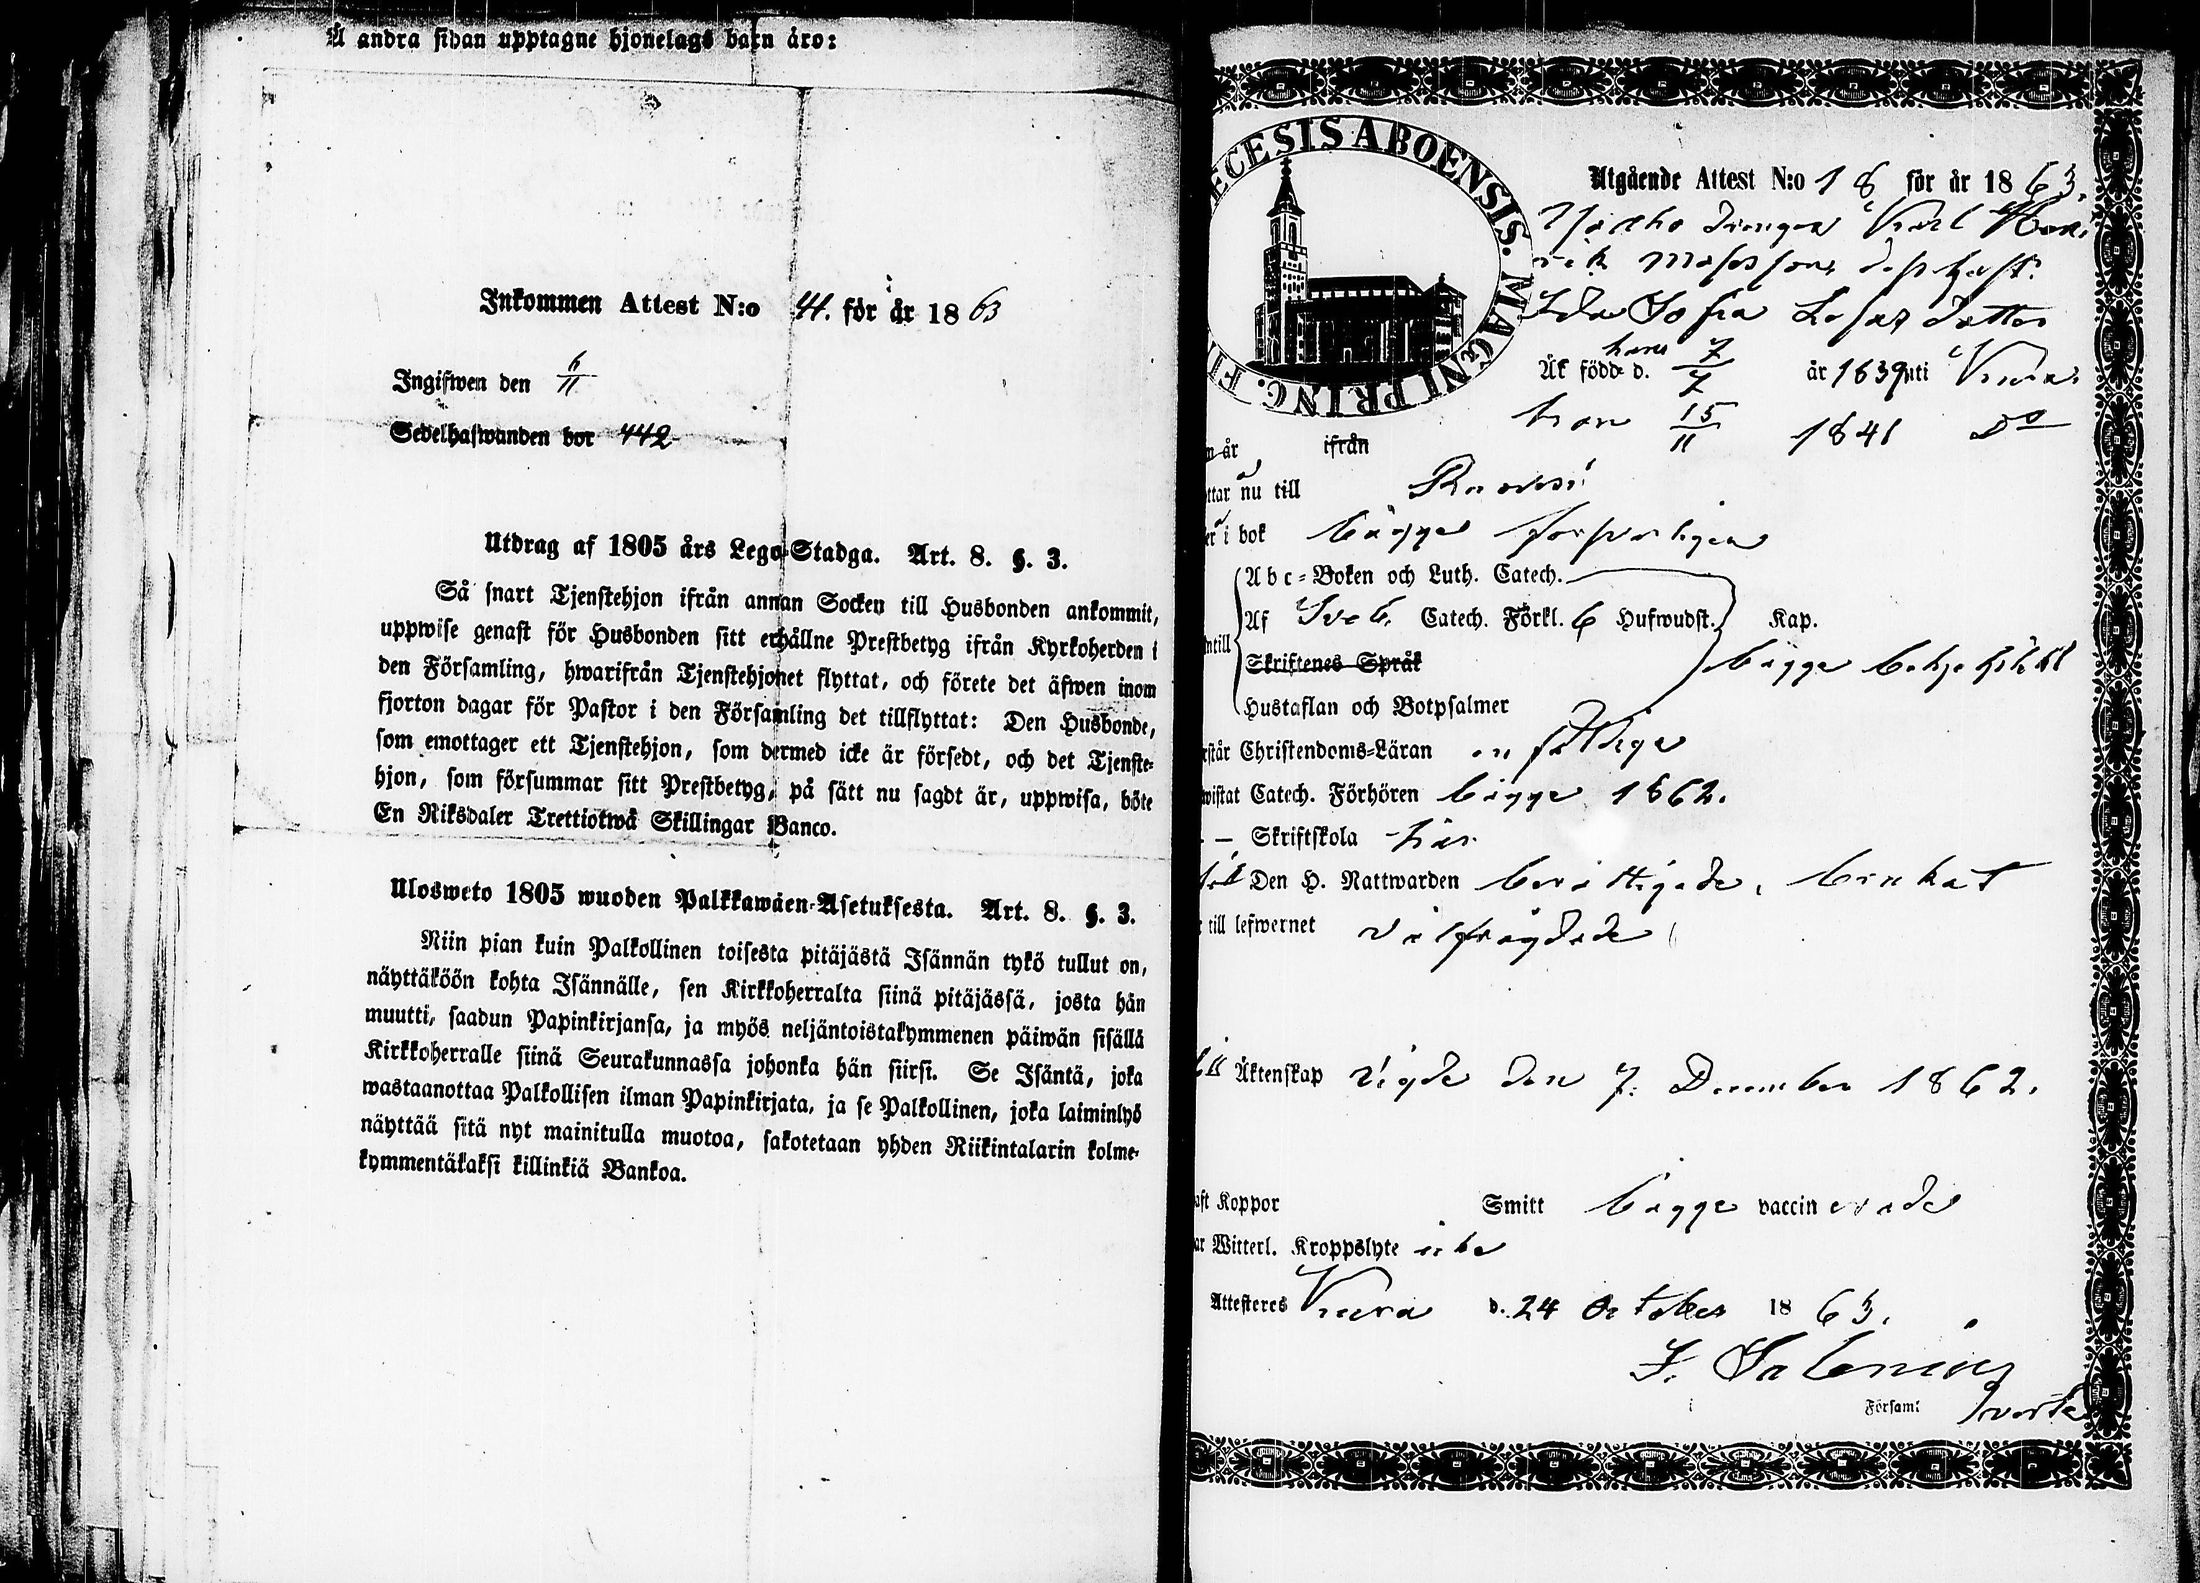 Å andra sidan upptagne hjonelags barn äro:
Inkommen Attest N:o 41. för år 1863
Ingifwen den 6/11
Sedelhafwanden bor 442
Utdrag af 1805 års Lego-Stadga. Art. 8. §. 3.
Så snart Tjenstehjon ifrån annan Socken till Husbonden ankommit,
uppwise genast för Husbonden sitt erhållne Prestbetyg ifrån Kyrkoherden i
den Församling, hwarifrån Tjenstehjonet flyttat, och förete det äfwen inom
fjorton dagar för Pastor i den Församling det tillflyttat: Den Husbonde,
som emottager ett Tjenstehjon, som dermed icke är försedt, och det Tjenste-
hjon, som försummar sitt Prestbetyg, på sätt nu sagdt är, uppwisa, böte
En Riksdaler Trettiotwå Skillingar Banco.
Ulosweto 1805 wuoden Palkkawäen-Asetuksesta. Art. 8. §. 3.
Niin pian kuin Palkollinen toisesta pitäjästä Isännän tykö tullut on,
näyttäköön kohta Isännälle, sen Kirkkoherralta siinä pitäjässä, josta hän
muutti, saadun Papinkirjansa, ja myös neljäntoistakymmenen päiwän sisällä
Kirkkoherralle siinä Seurakunnassa johonka hän siirsi. Se Isäntä, joka
wastaanottaa Palkollisen ilman Papinkirjata, ja se Palkollinen, joka laiminlyö
näyttää sitä nyt mainitulla muotoa, sakotetaan yhden Riikintalarin kolme-
kymmentäkaksi killinkiä Bankoa.
ECESIS ABOENSIS. MAGNI PRINC. FI
Utgående Attest N:o 18 för år 1863.
drengen Karl Hen-
rik dess hust.
Ida Sofia dotter
Är född d. hans 7/7 år 1839 uti Kiura
hon 15/11 1841 Do
år ifrån
ttar nu till
i bok bägge försvarligen
Abc-Boken och Luth. Catech.
Af Sveb. Catech. Förkl. 6 Hufwudst. Kap.
ntill Skriftenes Språk bägge
Hustaflan och Botpsalmer
rstår Christendoms-Läran enfaldige
wistat Catech. Förhören bägge 1862.
- - Skriftskola här
Den H. Nattwarden berättigade, brukat
till lefwernet välfrägdade
till Äktenskap vigde den 7: December 1862.
aft Koppor Smitt bägge vaccinerade
ar Witterl. Kroppslyte icke
Attesteres Kiura d. 24 October 1863.
F. Salenius
Församl